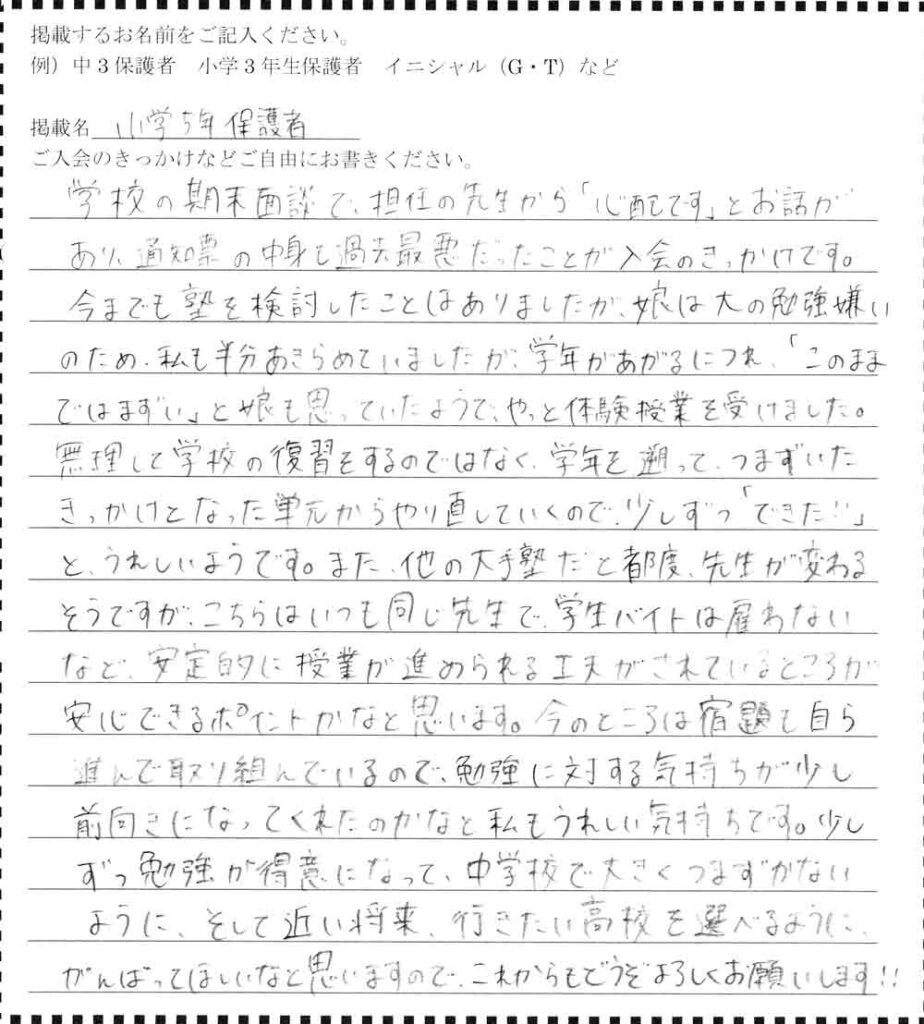 掲載するお名前をご記入ください。
例）中３保護者　小学３年生保護者　イニシャル（G・T）など
掲載名 小学5年 保護者
ご入会のきっかけなどご自由にお書きください。
学校の期末面談で、担任の先生から「心配です」とお話が
あり、通知票の中身も過去最悪だったことが入会のきっかけです。
今までも塾を検討したことはありましたが、娘は大の勉強嫌い
のため、私も半分あきらめていましたが、学年があがるにつれ、「このまま
ではまずい」と娘も思っていたようで、やっと体験授業を受けました。
無理して学校の復習をするのではなく、学年を遡って、つまずいた
きっかけとなった単元からやり直していくので、少しずつ「できた!!」
と、うれしいようです。また、他の大手塾だと都度、先生が変わる
そうですが、こちらはいつも同じ先生で、学生バイトは雇わない
など、安定的に授業が進められる工夫がされているところが
安心できるポイントかなと思います。今のところは宿題も自ら
進んで取り組んでいるので、勉強に対する気持ちが少し
前向きになってくれたのかなと私もうれしい気持ちです。少し
ずつ勉強が得意になって、中学校で大きくつまずかない
ように、そして近い将来、行きたい高校を選べるように、
がんばってほしいなと思いますので、これからもどうぞよろしくお願いします!!